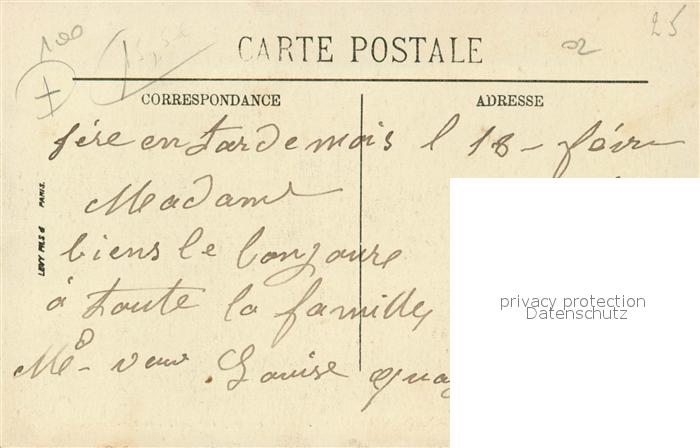 100
25
CARTE POSTALE
CORRESPONDANCE
ADRESSE
LEVY FILS & PARIS.
fére en tardemois l 18 - févr
Madame
biens le bonjoure
à toute la famille
Me veuve Louise
privacy protection
Datenschutz